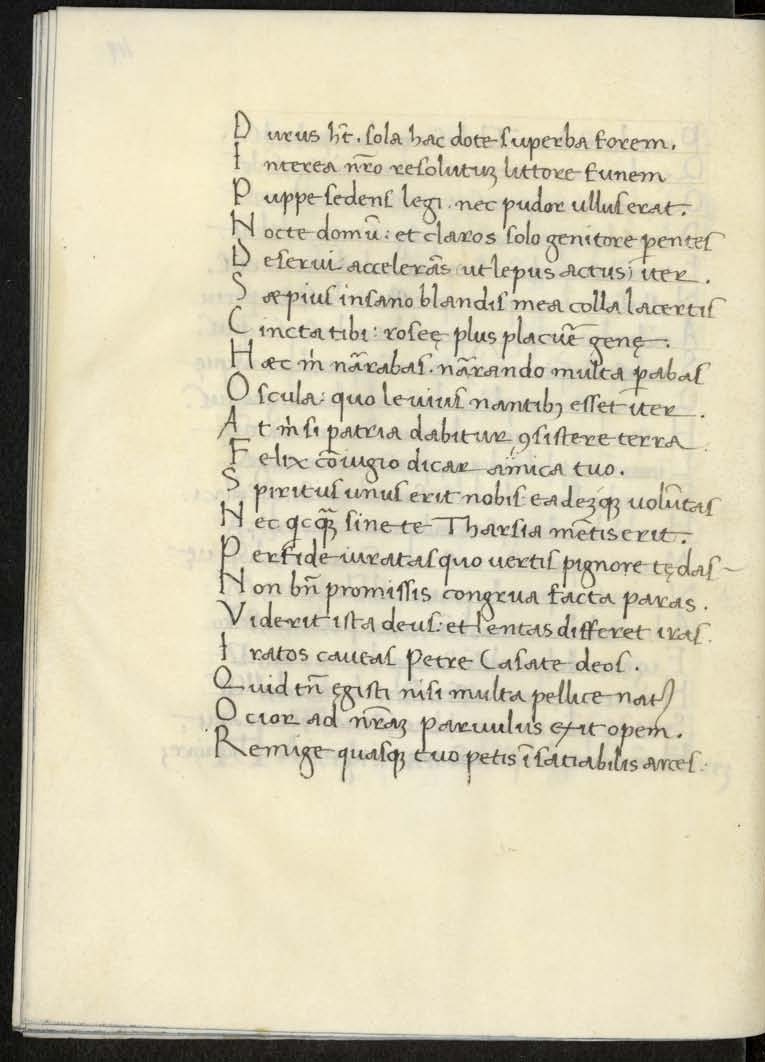 Durus hr̄t. sola hac dote superba forem.
Interea nr̄o resolutuꝫ littore funem
Puppe sedens legi. nec pudor ullus erat.
Nocte domū: et claros solo genitore ꝑentes
Deserui accelerās (ut lepus actus) iter.
Sæpius insano blandis mea colla lacertis
Cincta tibi: roseę plus placuēr genę.
Hæc m̍ nārabas. nārando multa ꝑabas
Oscula: quo levius nantibꝫ esset iter.
At m̍ si patria dabitur ꝯsistere terra
Felix cōiugio dicar amica tuo.
Spiritus unus erit nobis: eadeꝫqꝫ volūtas
Nec qcqꝫ sine te Tharsia mētis erit.
Perfide iuratas quo vertis pignore tędas
Non bn̄ promissis congrua facta paras.
Viderit ista deus: et lentas differet iras.
Iratos caveas Petre Casate deos.
Quid tn̄ ęgisti nisi multa pellice nat)
Ocior ad nr̄aꝫ parvulus exit opem.
Remige quasqꝫ tuo petis īsatiabilis arces.